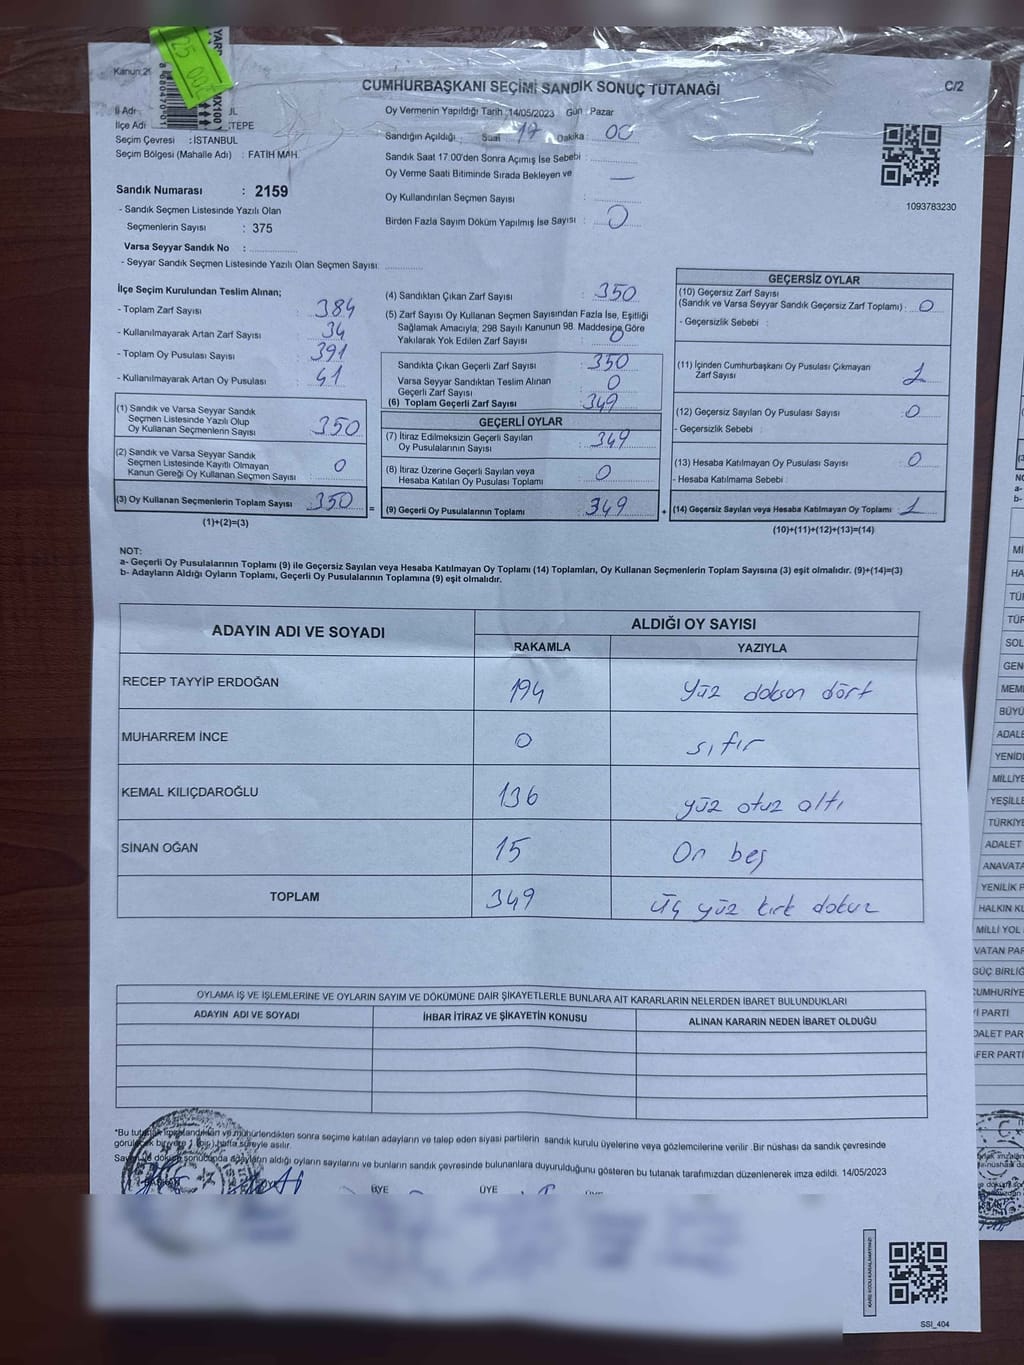 25
CUMHURBAŞKANI SEÇİMİ SANDIK SONUÇ TUTANAĞI
C/2
İl Adı
İlçe Adı TEPE
Seçim Çevresi : İSTANBUL
Seçim Bölgesi (Mahalle Adı) : FATİH MAH.
Sandık Numarası : 2159
- Sandık Seçmen Listesinde Yazılı Olan
Seçmenlerin Sayısı : 375
Varsa Seyyar Sandık No :
- Seyyar Sandık Seçmen Listesinde Yazılı Olan Seçmen Sayısı:
Oy Vermenin Yapıldığı Tarih :14/05/2023 Gün : Pazar
Sandığın Açıldığı Saat 17 Dakika : 00
Sandık Saat 17.00'den Sonra Açımış İse Sebebi :
Oy Verme Saati Bitiminde Sırada Bekleyen ve —
Oy Kullandırılan Seçmen Sayısı :
Birden Fazla Sayım Döküm Yapılmış İse Sayısı : 0
1093783230
İlçe Seçim Kurulundan Teslim Alınan;
- Toplam Zarf Sayısı : 384
- Kullanılmayarak Artan Zarf Sayısı : 34
- Toplam Oy Pusulası Sayısı : 391
- Kullanılmayarak Artan Oy Pusulası : 41
(1) Sandık ve Varsa Seyyar Sandık
Seçmen Listesinde Yazılı Olup
Oy Kullanan Seçmenlerin Sayısı : 350
(2) Sandık ve Varsa Seyyar Sandık
Seçmen Listesinde Kayıtlı Olmayan
Kanun Gereği Oy Kullanan Seçmen Sayısı : 0
(3) Oy Kullanan Seçmenlerin Toplam Sayısı : 350 =
(1)+(2)=(3)
(4) Sandıktan Çıkan Zarf Sayısı : 350
(5) Zarf Sayısı Oy Kullanan Seçmen Sayısından Fazla İse, Eşitliği
Sağlamak Amacıyla; 298 Sayılı Kanunun 98. Maddesine Göre
Yakılarak Yok Edilen Zarf Sayısı : 0
Sandıkta Çıkan Geçerli Zarf Sayısı : 350
Varsa Seyyar Sandıktan Teslim Alınan
Geçerli Zarf Sayısı : 0
(6) Toplam Geçerli Zarf Sayısı : 349
GEÇERLİ OYLAR
(7) İtiraz Edilmeksizin Geçerli Sayılan
Oy Pusulalarının Sayısı : 349
(8) İtiraz Üzerine Geçerli Sayılan veya
Hesaba Katılan Oy Pusulası Toplamı : 0
(9) Geçerli Oy Pusulalarının Toplamı : 349 +
GEÇERSİZ OYLAR
(10) Geçersiz Zarf Sayısı
(Sandık ve Varsa Seyyar Sandık Geçersiz Zarf Toplamı) : 0
- Geçersizlik Sebebi :
(11) İçinden Cumhurbaşkanı Oy Pusulası Çıkmayan
Zarf Sayısı : 1
(12) Geçersiz Sayılan Oy Pusulası Sayısı : 0
- Geçersizlik Sebebi :
(13) Hesaba Katılmayan Oy Pusulası Sayısı : 0
- Hesaba Katılmama Sebebi :
(14) Geçersiz Sayılan veya Hesaba Katılmayan Oy Toplamı : 1
(10)+(11)+(12)+(13)=(14)
NOT:
a- Geçerli Oy Pusulalarının Toplamı (9) ile Geçersiz Sayılan veya Hesaba Katılmayan Oy Toplamı (14) Toplamları, Oy Kullanan Seçmenlerin Toplam Sayısına (3) eşit olmalıdır. (9)+(14)=(3)
b- Adayların Aldığı Oyların Toplamı, Geçerli Oy Pusulalarının Toplamına (9) eşit olmalıdır.
ADAYIN ADI VE SOYADI ALDIĞI OY SAYISI
RAKAMLA YAZIYLA
RECEP TAYYİP ERDOĞAN 194 yüz doksan dört
MUHARREM İNCE 0 sıfır
KEMAL KILIÇDAROĞLU 136 yüz otuz altı
SİNAN OĞAN 15 On beş
TOPLAM 349 üç yüz kırk dokuz
OYLAMA İŞ VE İŞLEMLERİNE VE OYLARIN SAYIM VE DÖKÜMÜNE DAİR ŞİKAYETLERLE BUNLARA AİT KARARLARIN NELERDEN İBARET BULUNDUKLARI
ADAYIN ADI VE SOYADI İHBAR İTİRAZ VE ŞİKAYETİN KONUSU ALINAN KARARIN NEDEN İBARET OLDUĞU
*Bu tutanak imzalandıktan ve mühürlendikten sonra seçime katılan adayların ve talep eden siyasi partilerin sandık kurulu üyelerine veya gözlemcilerine verilir .Bir nüshası da sandık çevresinde
görülecek bir yere 1 (bir) hafta süreyle asılır.
Sayım ve döküm sonucunda adayların aldığı oyların sayılarını ve bunların sandık çevresinde bulunanlara duyurulduğunu gösteren bu tutanak tarafımızdan düzenlenerek imza edildi. 14/05/2023
ÜYE ÜYE
SSI_404
SOL
GEN
MEM
BÜYÜ
ADALE
YENİD
MİLLİYE
YEŞİLLE
TÜRKİYE
ADALET
ANAVATA
YENİLİK P
HALKIN KU
MİLLİ YOL
VATAN PAR
GÜÇ BİRLİĞ
CUMHURİYE
Yİ PARTİ
ADALET PAR
AFER PARTİ